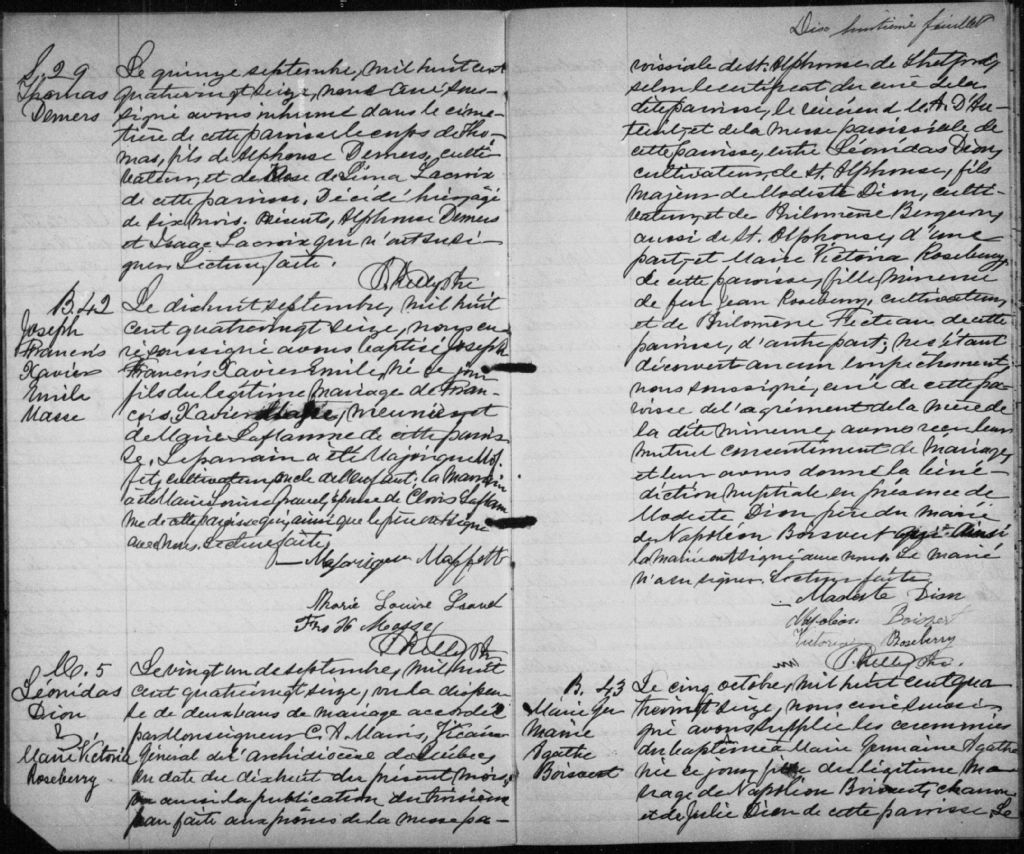 S. 29
Thomas
Demers
Le quinze septembre, mil huit cent
quatrevingt seize, nous curé sous-
signé avons inhumé dans le cime-
tière de cette paroisse le corps de Tho-
mas, fils de Alphonse Demers, culti-
vateur, et de Rose de Lima Lacroix
de cette paroisse. Décédé hier, agé
de six mois. Présents, Alphonse Demers
et Isaac Lacroix qui n'ont su si-
gner. Lecture faite.
Ptre
B. 42
Joseph
Francois
Xavier
Emile
Masse
Le dixhuit septembre, mil huit
cent quatrevingt seize, nous cu-
ré soussigné avons baptisé Joseph
Francois Xavier Emile, né ce jour
fils du légitime mariage de Fran-
çois Xavier Masse, meunier, et
de Marie Laflamme de cette parois
se. Le parrain a été Majorique
cultivateur, oncle de l'enfant; la marraine
a été Marie Louise Gravel, épouse de Clovis Laflam
me de cette paroisse qui, ainsi que le père ont signé
avec nous. Lecture faite,
Majorique
Marie Louise Gravel
Frs X Masse
Ptre
M. 5
Léonidas
Dion
&
Marie Victoria
Roseberry
Le vingt un de septembre, mil huit
cent quatrevingt seize, vu la dispen-
se de deux bans de mariage accordée
par Monseigneur C. A. Marois, Vicaire
Général de l'archidiocèse de Québec,
en date du dixhuit du présent mois,
vu aussi la publication du troisième
ban faite aux prones de la messe pa-
Dix huitième feuillet
roissiale de St. Alphonse de Thetford,
selon le certificat du curé de la
dite paroisse, le révérend
et de la messe paroissiale de
cette paroisse, entre Léonidas Dion,
cultivateur, de St. Alphonse, fils
majeur de Modeste Dion, culti-
vateur, et de Philomène Bergeron,
aussi de St. Alphonse, d'une
part, et Marie Victoria Roseberry,
de cette paroisse, fille mineure
de feu Jean Roseberry, cultivateur,
et de Philomène Fecteau de cette
paroisse, d'autre part; ne s'étant
découvert aucun empêchement,
nous soussigné, curé de cette pa-
roisse de l'agrément de la mère de
la dite mineure, avons reçu leur
mutuel consentement de mariage,
et leur avons donné la béné-
diction nuptiale en présence de
Modeste Dion père du marié
de Napoléon Boisvert qui ainsi
la mariée ont signé avec nous. Le marié
n'a su signer. Lecture faite,
Modeste Dion
Napoléon Boisvert
Victoria Roseberry
Ptre.
B. 43
Marie Ger
maine
Agathe
Boisvert
Le cinq octobre, mil huit cent qua
trevingt seize, nous curé soussi-
gné avons supplié les cérémonies
du baptême à Marie Germaine Agathe
née ce jour, fille du légitime ma-
riage de Napoléon Boisvert,
et de Julie Dion de cette paroisse. Le